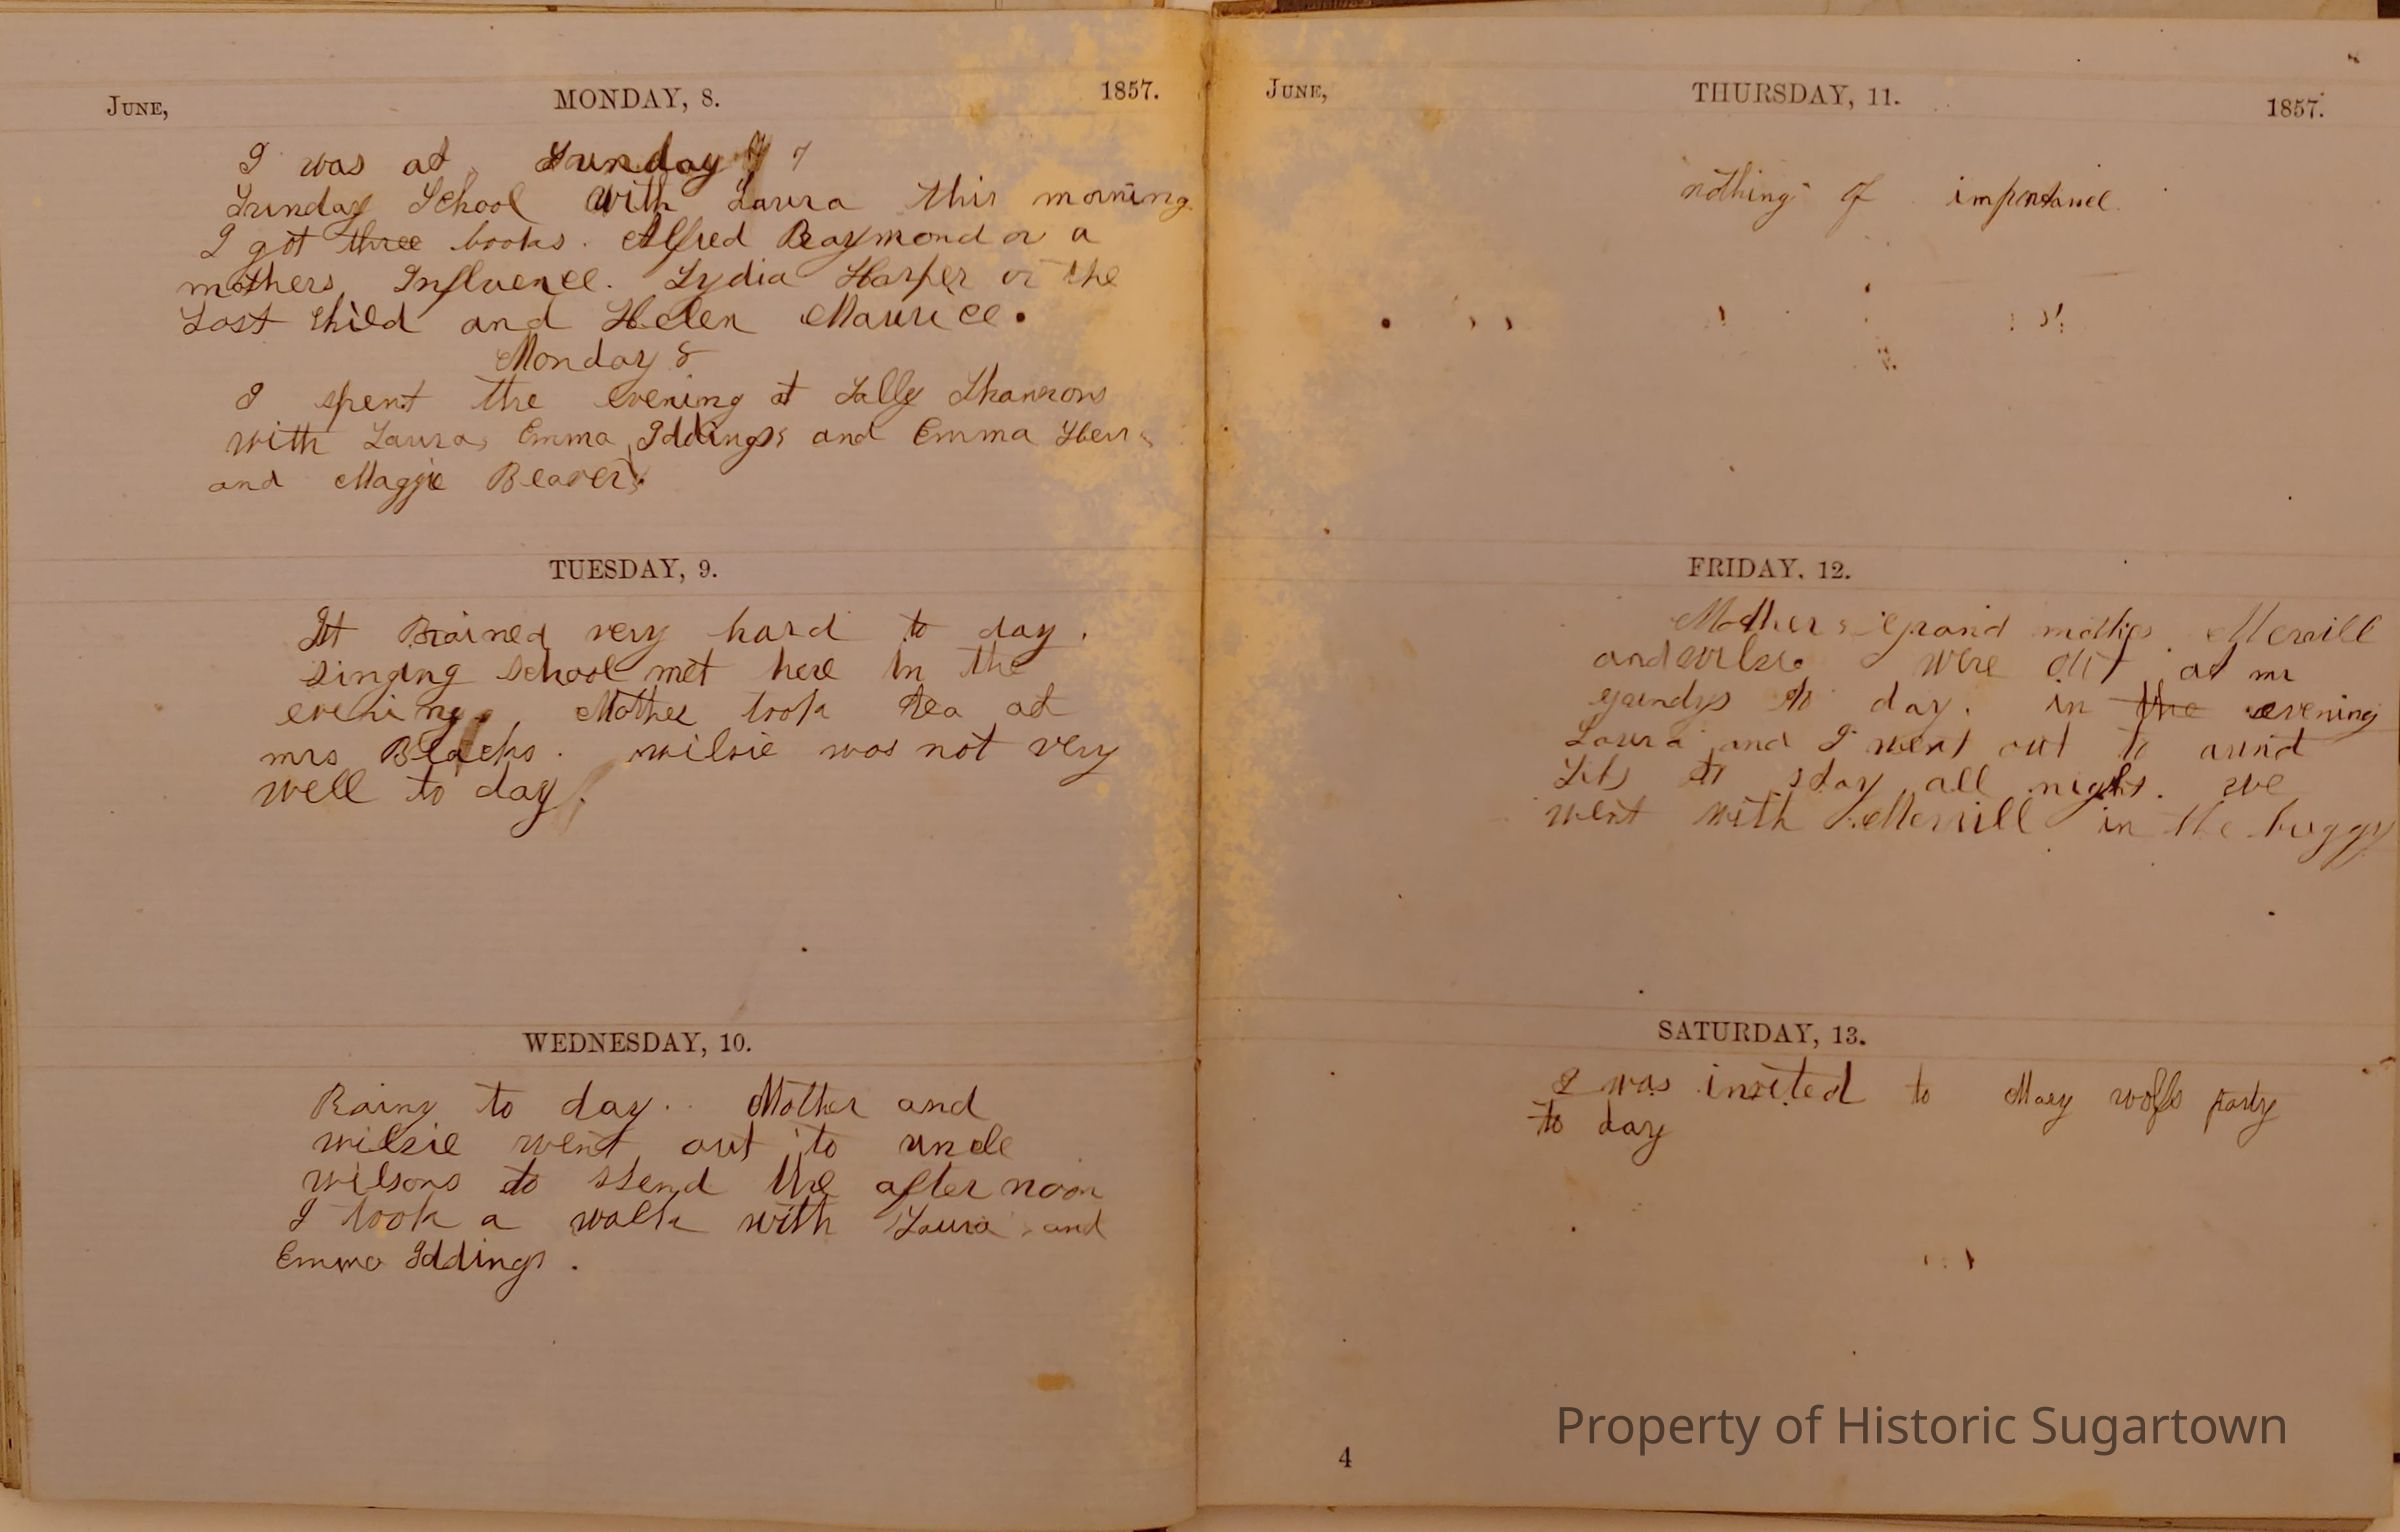 JUNE, MONDAY, 8. 1857.
I was at Sunday 7
Sunday School with Laura this morning
I got three books. Alfred Raymond or a
mothers Influence. Lydia Harper or the
Lost Child and Helen Maurice.
Monday 8
I spent the evening at Sally Shannons
with Laura, Emma Iddings, and Emma Herr
and Maggie Beaver.
TUESDAY, 9.
It Rained very hard to day.
singing school met here in the
evening. Mother took tea at
mrs Blacks. wilsie was not very
well to day.
WEDNESDAY, 10.
Rainy to day. Mother and
wilsie went out to uncle
wilsons to spend the after noon
I took a walk with Laura and
Emma Iddings.
JUNE, THURSDAY, 11. 1857.
nothing of importance.
FRIDAY, 12.
Mother, grand mother, Merrill
and wilsie were out at mr
gundys to day. in the evening
Laura and I went out to aunt
to stay all night. we
went with Merrill in the buggy
SATURDAY, 13.
I was invited to Mary wolfs party
to day
4
Property of Historic Sugartown